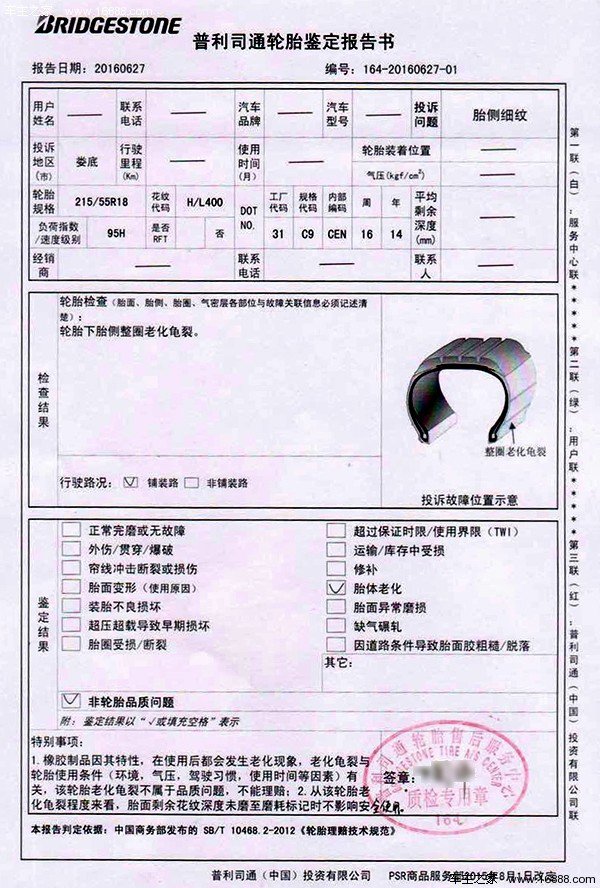 车主之家 www.16888.com
BRIDGESTONE
普利司通轮胎鉴定报告书
报告日期：20160627 编号：164-20160627-01
用户姓名 联系电话 汽车品牌 汽车型号 投诉问题 胎侧细纹
投诉地区(市) 娄底 行驶里程(Km) 使用时间(月) 轮胎装着位置
气压(kgf/cm²)
轮胎规格 215/55R18 花纹代码 H/L400 DOT NO. 工厂代码 规格代码 内部编码 周 年 平均剩余深度(mm)
负荷指数/速度级别 95H 是否RFT 否 31 C9 CEN 16 14
经销商 联系电话 联系人
检查结果
轮胎检查(胎面、胎侧、胎圈、气密层各部位与故障关联信息必须记述清
楚)：
轮胎下胎侧整圈老化龟裂。
整圈老化龟裂
行驶路况： ✓ 铺装路 非铺装路
投诉故障位置示意
鉴定结果
正常完磨或无故障 超过保证时限/使用界限(TWI)
外伤/贯穿/爆破 运输/库存中受损
帘线冲击断裂或损伤 修补
胎面变形(使用原因) ✓ 胎体老化
装胎不良损坏 胎面异常磨损
超压超载导致早期损坏 缺气碾轧
胎圈受损/断裂 因道路条件导致胎面胶粗糙/脱落
其它：
✓ 非轮胎品质问题
附：鉴定结果以"√或填充空格"表示
特别事项：
1.橡胶制品因其特性，在使用后都会发生老化现象，老化龟裂与
轮胎使用条件（环境，气压，驾驶习惯，使用时间等因素）有
关，该轮胎老化龟裂不属于品质问题，不能理赔；2.从该轮胎老
化龟裂程度来看，胎面剩余花纹深度未磨至磨耗标记时不影响安全使用
签章：
普利司通轮胎售后服务中心
BRIDGESTONE TIRE A/S CENTER
质检专用章
164
本报告判定依据：中国商务部发布的 SB/T 10468.2-2012《轮胎理赔技术规范》
普利司通（中国）投资有限公司 PSR商品服务部2015年8月1日改定
第一联（白）：服务中心联*****第二联（绿）：用户联*****第三联（红）：普利司通（中国）投资有限公司联
车主之家·www.16888.com